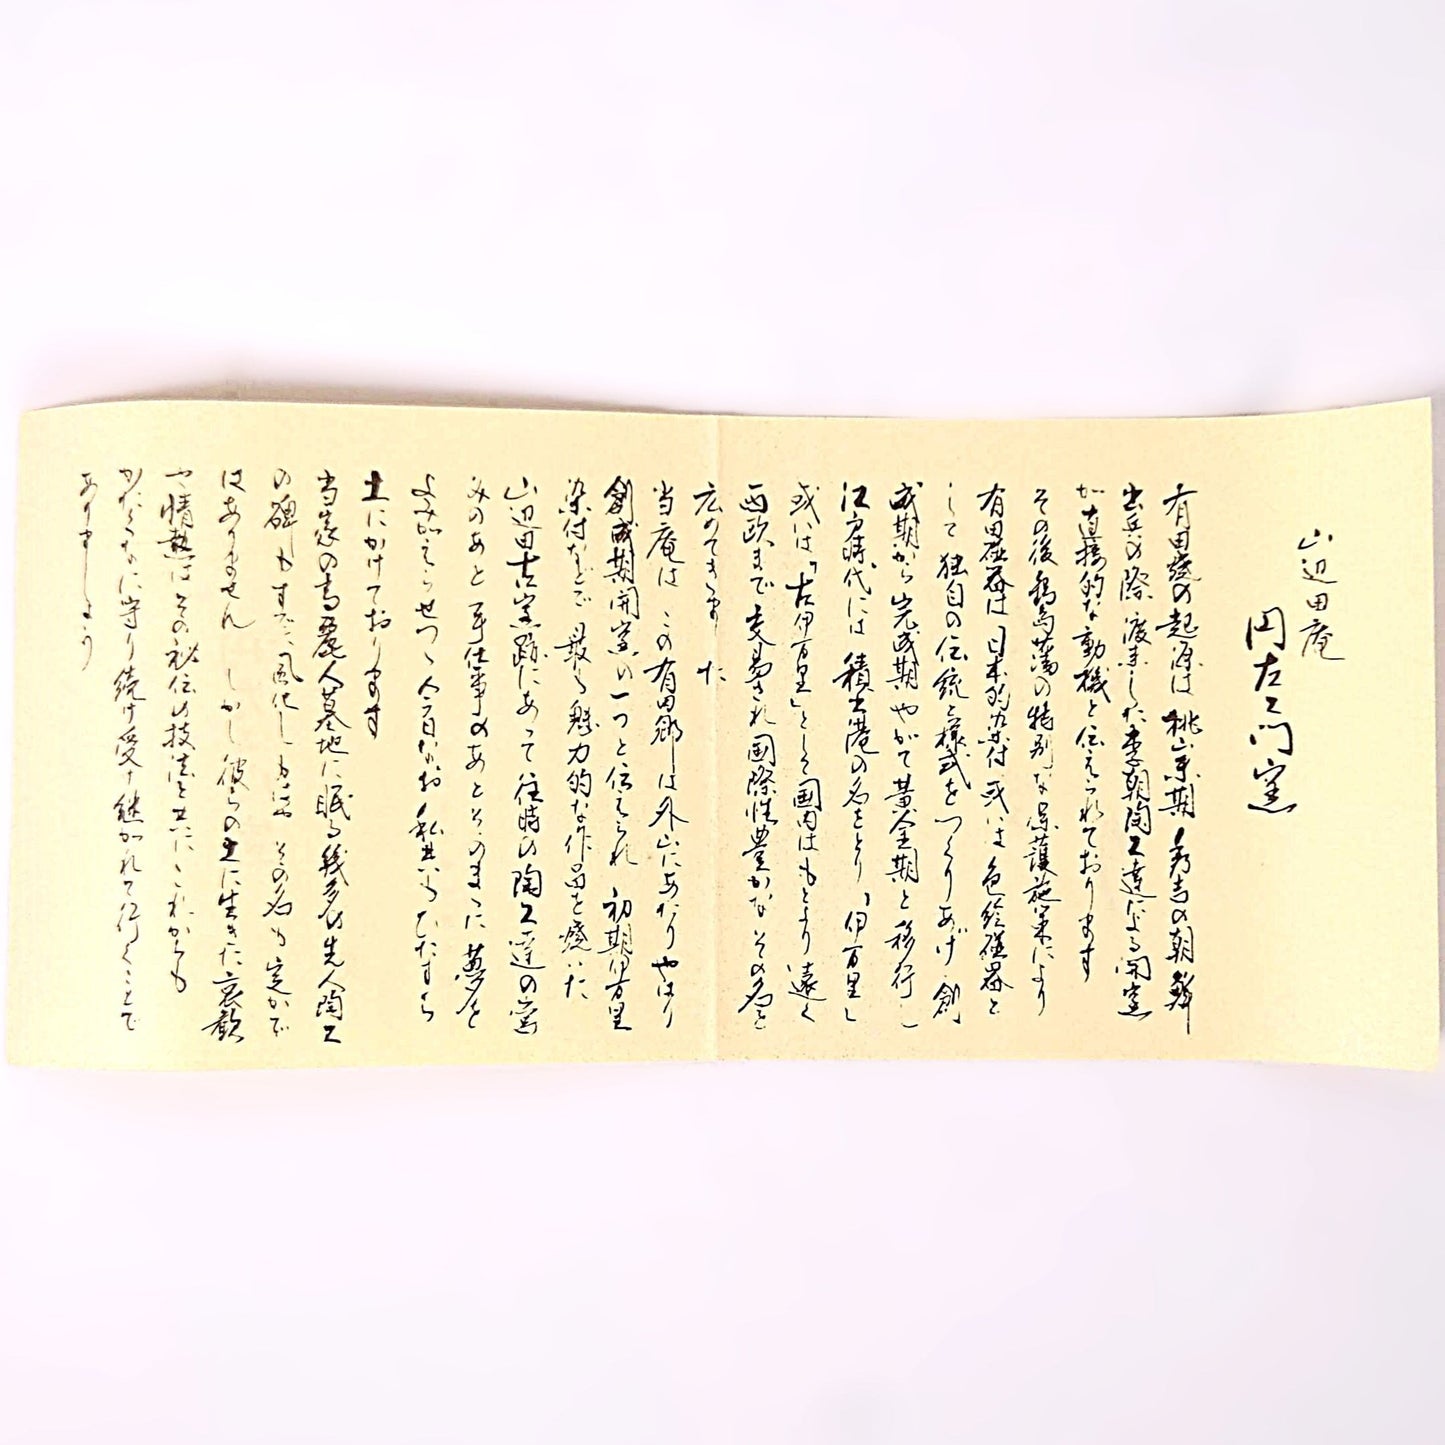 山辺田庵
円左ェ門窯
有田焼の起源は 桃山末期 秀吉の朝鮮
出兵の際 渡来した李朝陶工達による開窯
が直接的な動機と伝えられております
その後鍋島藩の特別な保護施策により
有田磁器は 日本的染付 或いは 色絵磁器と
して 独自の伝統と様式をつくりあげ 創
成期から完成期 やがて黄金期と移行し
江戸時代には 積出港の名をとり「伊万里」
或いは「古伊万里」として国内はもとより遠く
西欧まで交易され 国際性豊かな その名を
広めてきました
当庵は この有田郷は外山にあたり やはり
創成期開窯の一つと伝えられ 初期伊万里
染付などで 最も魅力的な作品を焼いた
山辺田古窯跡にあって 往時の陶工達の窯
みのあと 手仕事のあとそのまゝに 夢を
よみがえらせつゝ 今日なお 私共は ひたすら
土にかけております
当窯の高麗人墓地に眠る 幾多の先人陶工
の碑も すでに風化し もはや その名も定かで
はありません しかし 彼らの土に生きた哀歓
や情熱は その秘伝の技法と共に これからも
かたくなに守り続け受け継がれて行くことで
ありましょう